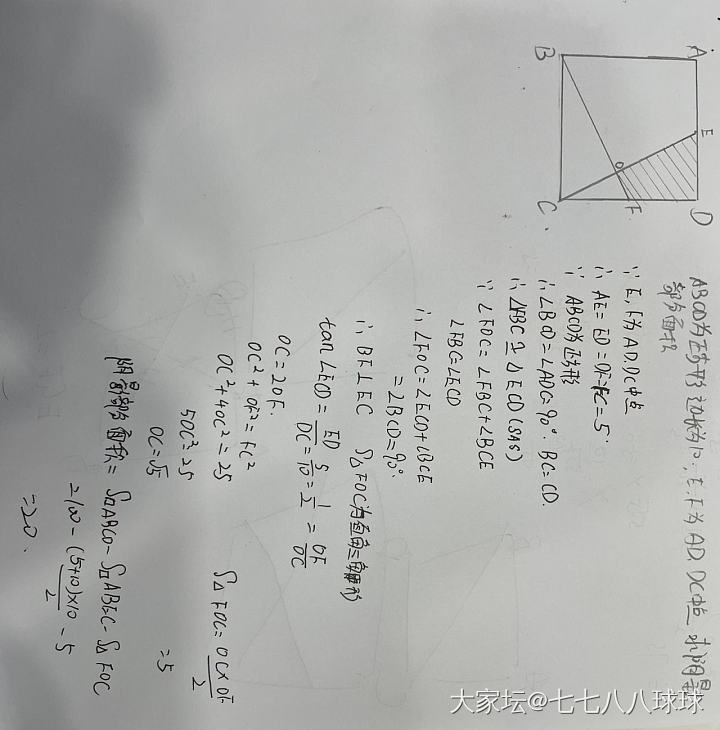 ABCD为正方形 边长为10, E. F为AD. DC中点 求阴影
部分面积
A
E
D
B
O
F
C
∵ E, F为AD. DC中点
∴ AE=ED=DF=FC=5.
∵ ABCD为正方形
∴ ∠BCD=∠ADC=90°. BC=CD.
∴ △FBC≌△ECD (SAS)
∵ ∠FOC=∠FBC+∠BCE
∠FBC=∠ECD
∴ ∠FOC=∠ECD+∠BCE
=∠BCD=90°.
∴ BF⊥EC S△FOC为直角三角形
tan∠ECD=ED/DC=5/10=1/2=OF/OC
OC=2OF.
OC²+OF²=FC²
OC²+4OC²=25
5OC²=25
OC=√5
S△FOC=OC×OF/2
=5
阴影部分面积=S□ABCD-S□ABEC-S△FOC
=100-(5+10)×10/2-5
=20.
大家坛@七七八八球球